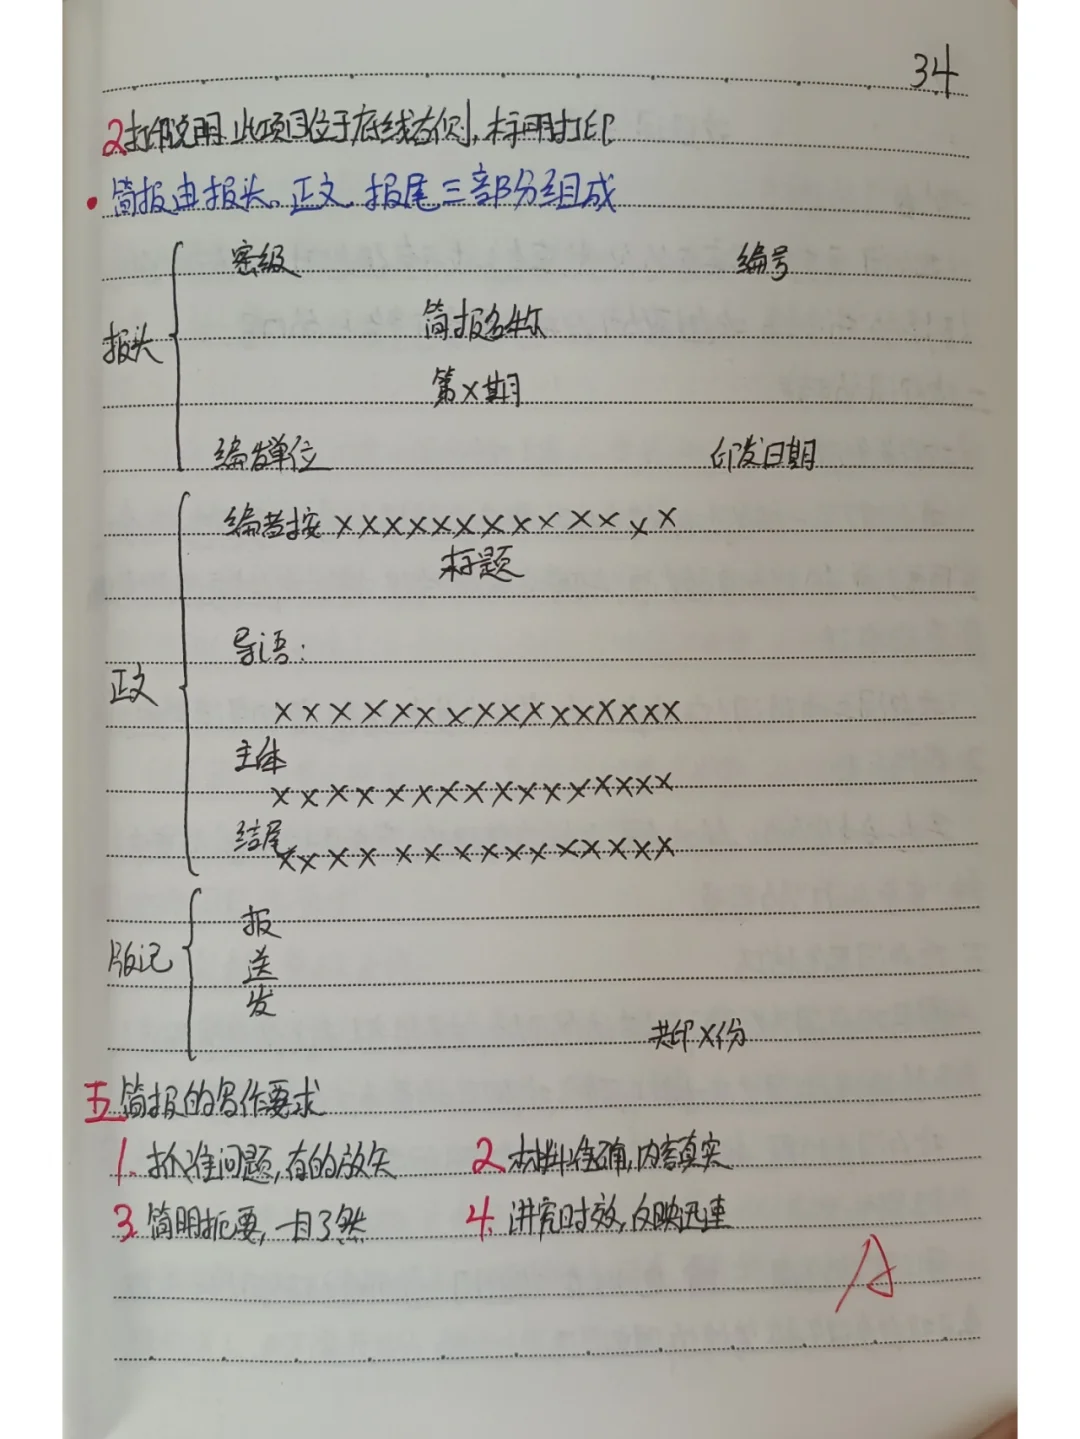 34
2打印说明 此项目位于底线右侧,标明打印
·简报由报头、正文、报尾三部分组成
密级 编号
简报名称
报头
第X期
编发单位 印发日期
编者按 XXXXXXXXXXXXXX
标题
导语:
正文
XXXXXXXXXXXXXXXX
主体
XXXXXXXXXXXXXXXX
结尾XXXXXXXXXXXXXXX
报
版记 送
发
共印X份
五 简报的写作要求
1. 抓准问题,有的放矢 2 材料准确,内容真实
3. 简明扼要,一目了然 4. 讲究时效,反映迅速
A